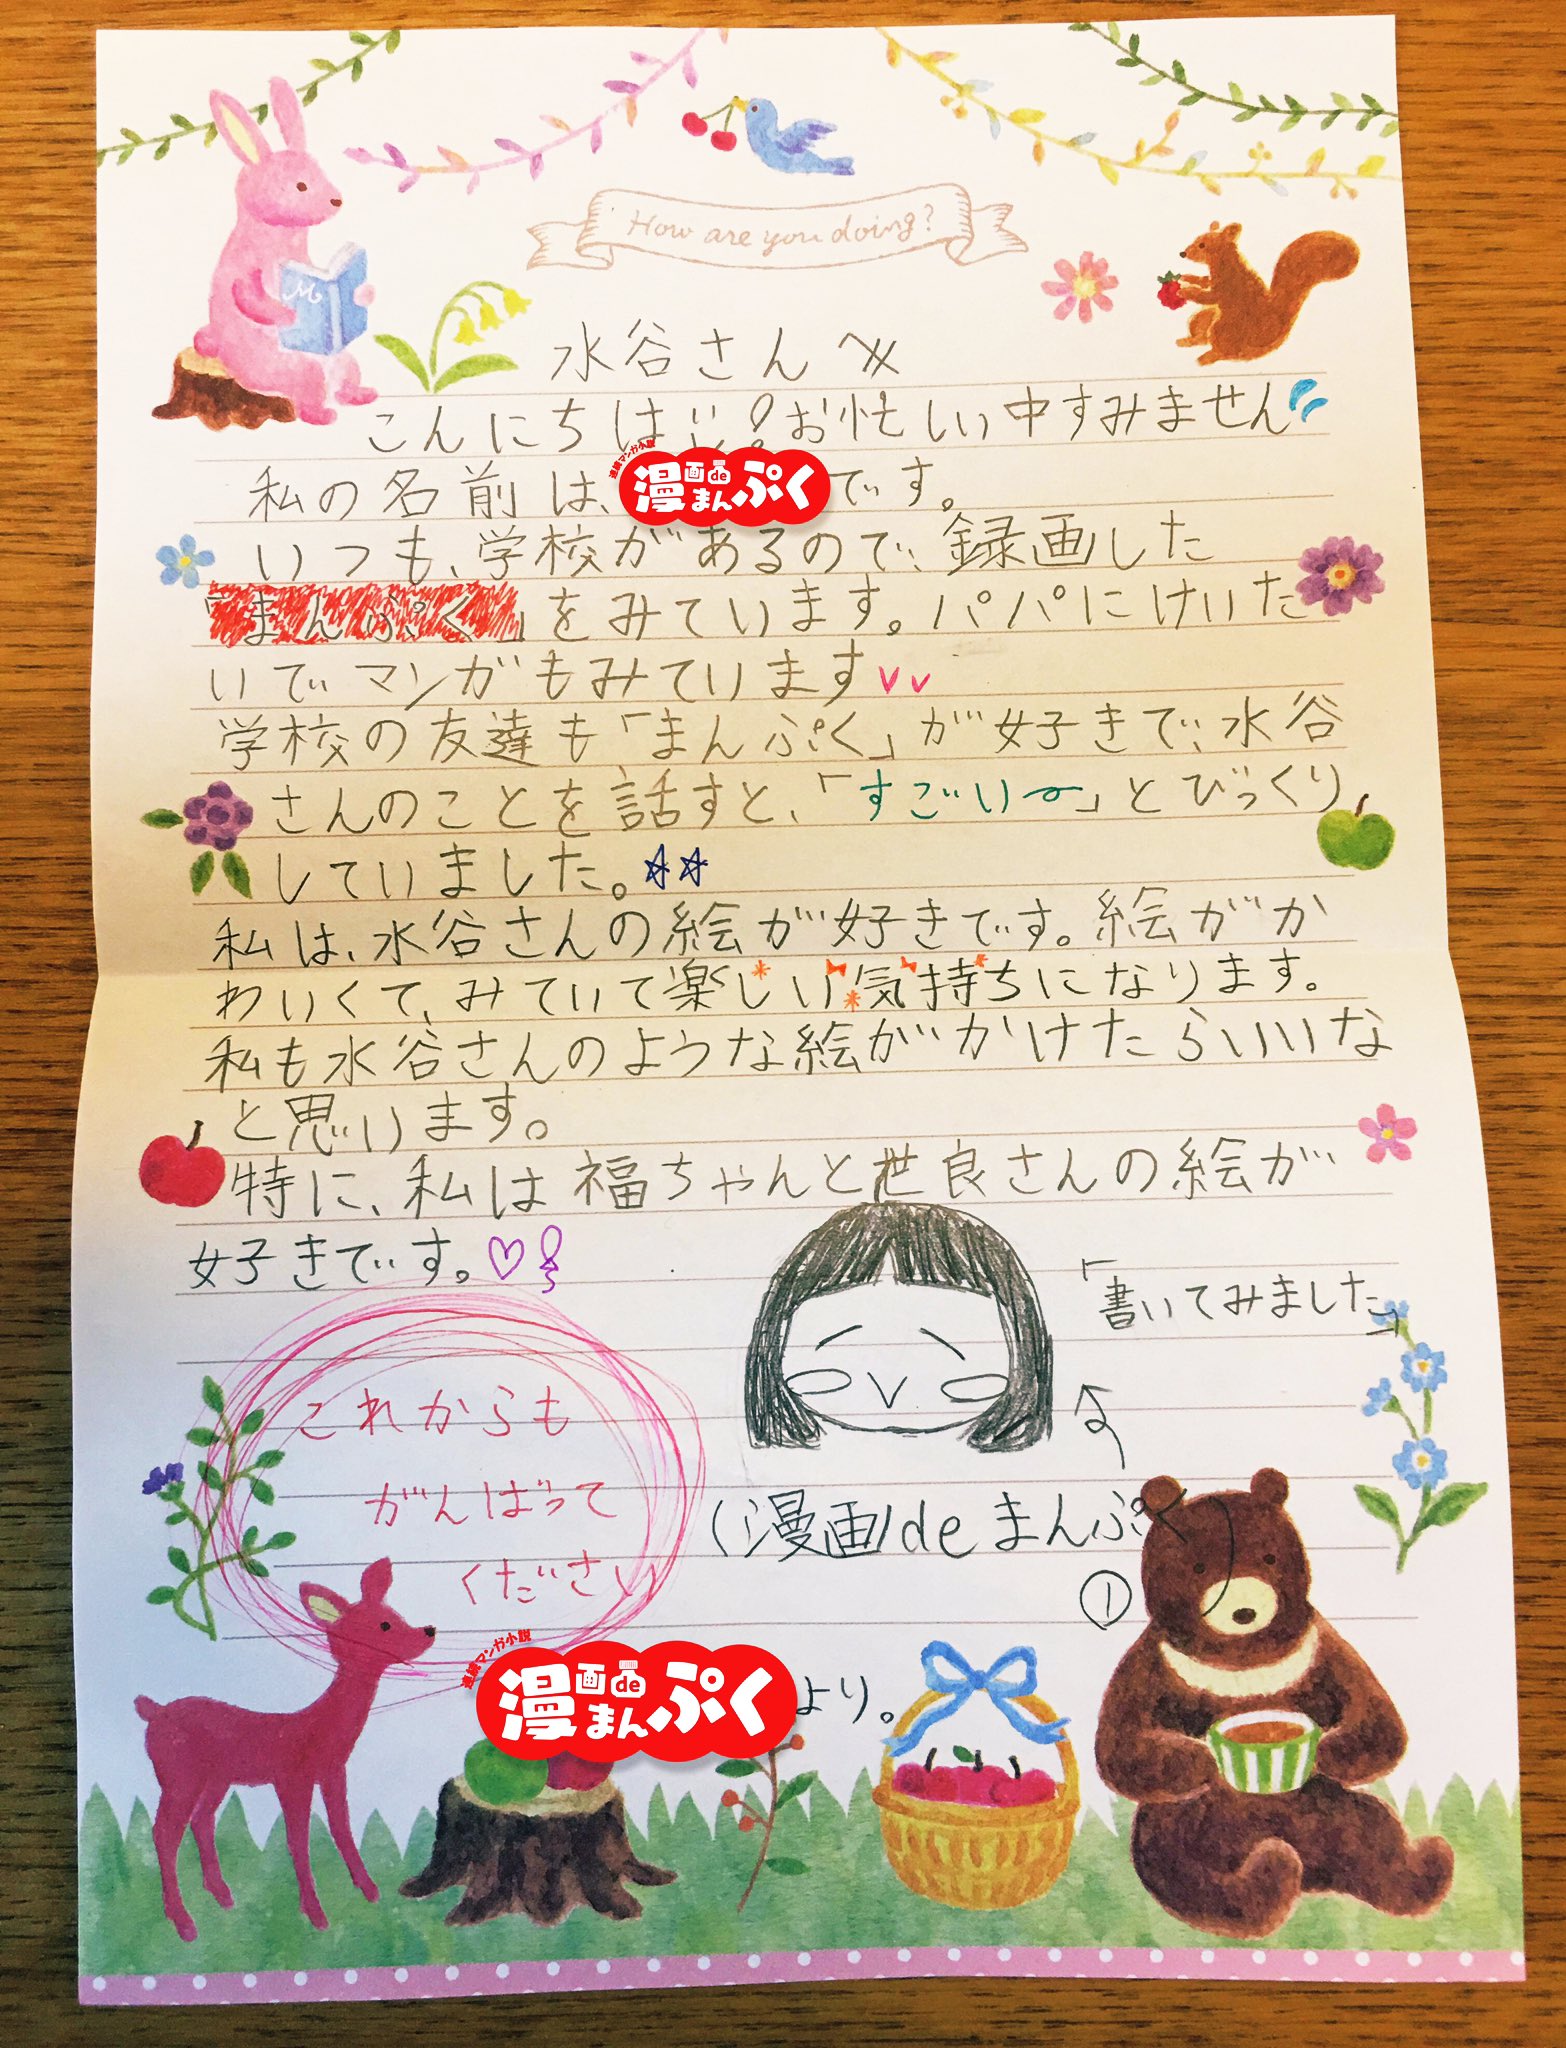 How are you doing?
水谷さんへ
こんにちは!!お忙しい中すみません
私の名前は、
連続マンガ小説
漫画deまんぷく
です。
いつも、学校があるので、録画した
「まんぷく」をみています。パパにけいた
いでマンガもみています
学校の友達も「まんぷく」が好きで、水谷
さんのことを話すと、「すごいー」とびっくり
していました。☆☆
私は、水谷さんの絵が好きです。絵がか
わいくて、みていて楽しい気持ちになります。
私も水谷さんのような絵がかけたらいいな
と思います。
特に、私は福ちゃんと世良さんの絵が
好きです。♡
「書いてみました」
これからも
がんばって
ください
(漫画deまんぷく)
①
連続マンガ小説
漫画deまんぷく
より。